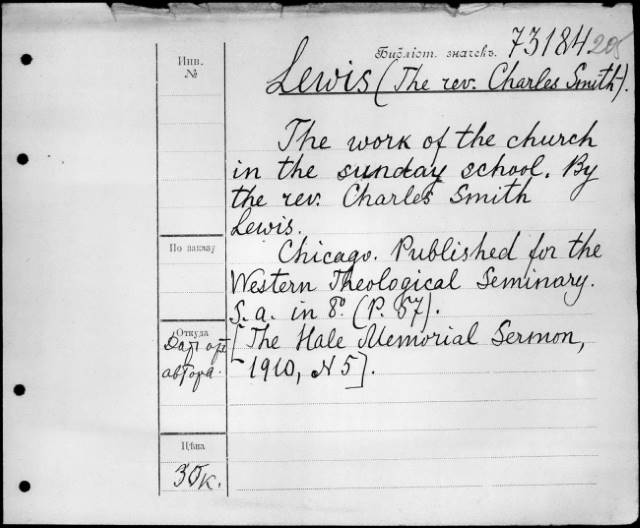 Инв.
№
Библіот. значекъ. 73184 205
Lewis (The rev. Charles Smith).
The work of the church
in the sunday school. By
the rev. Charles Smith
Lewis.
По заказу
Chicago. Published for the
Western Theological Seminary.
S. a. in 8º. (P. 57).
Откуда
Дар от
автора.
[The Hale Memorial Sermon,
1910, N 5].
Цѣна
30 к.